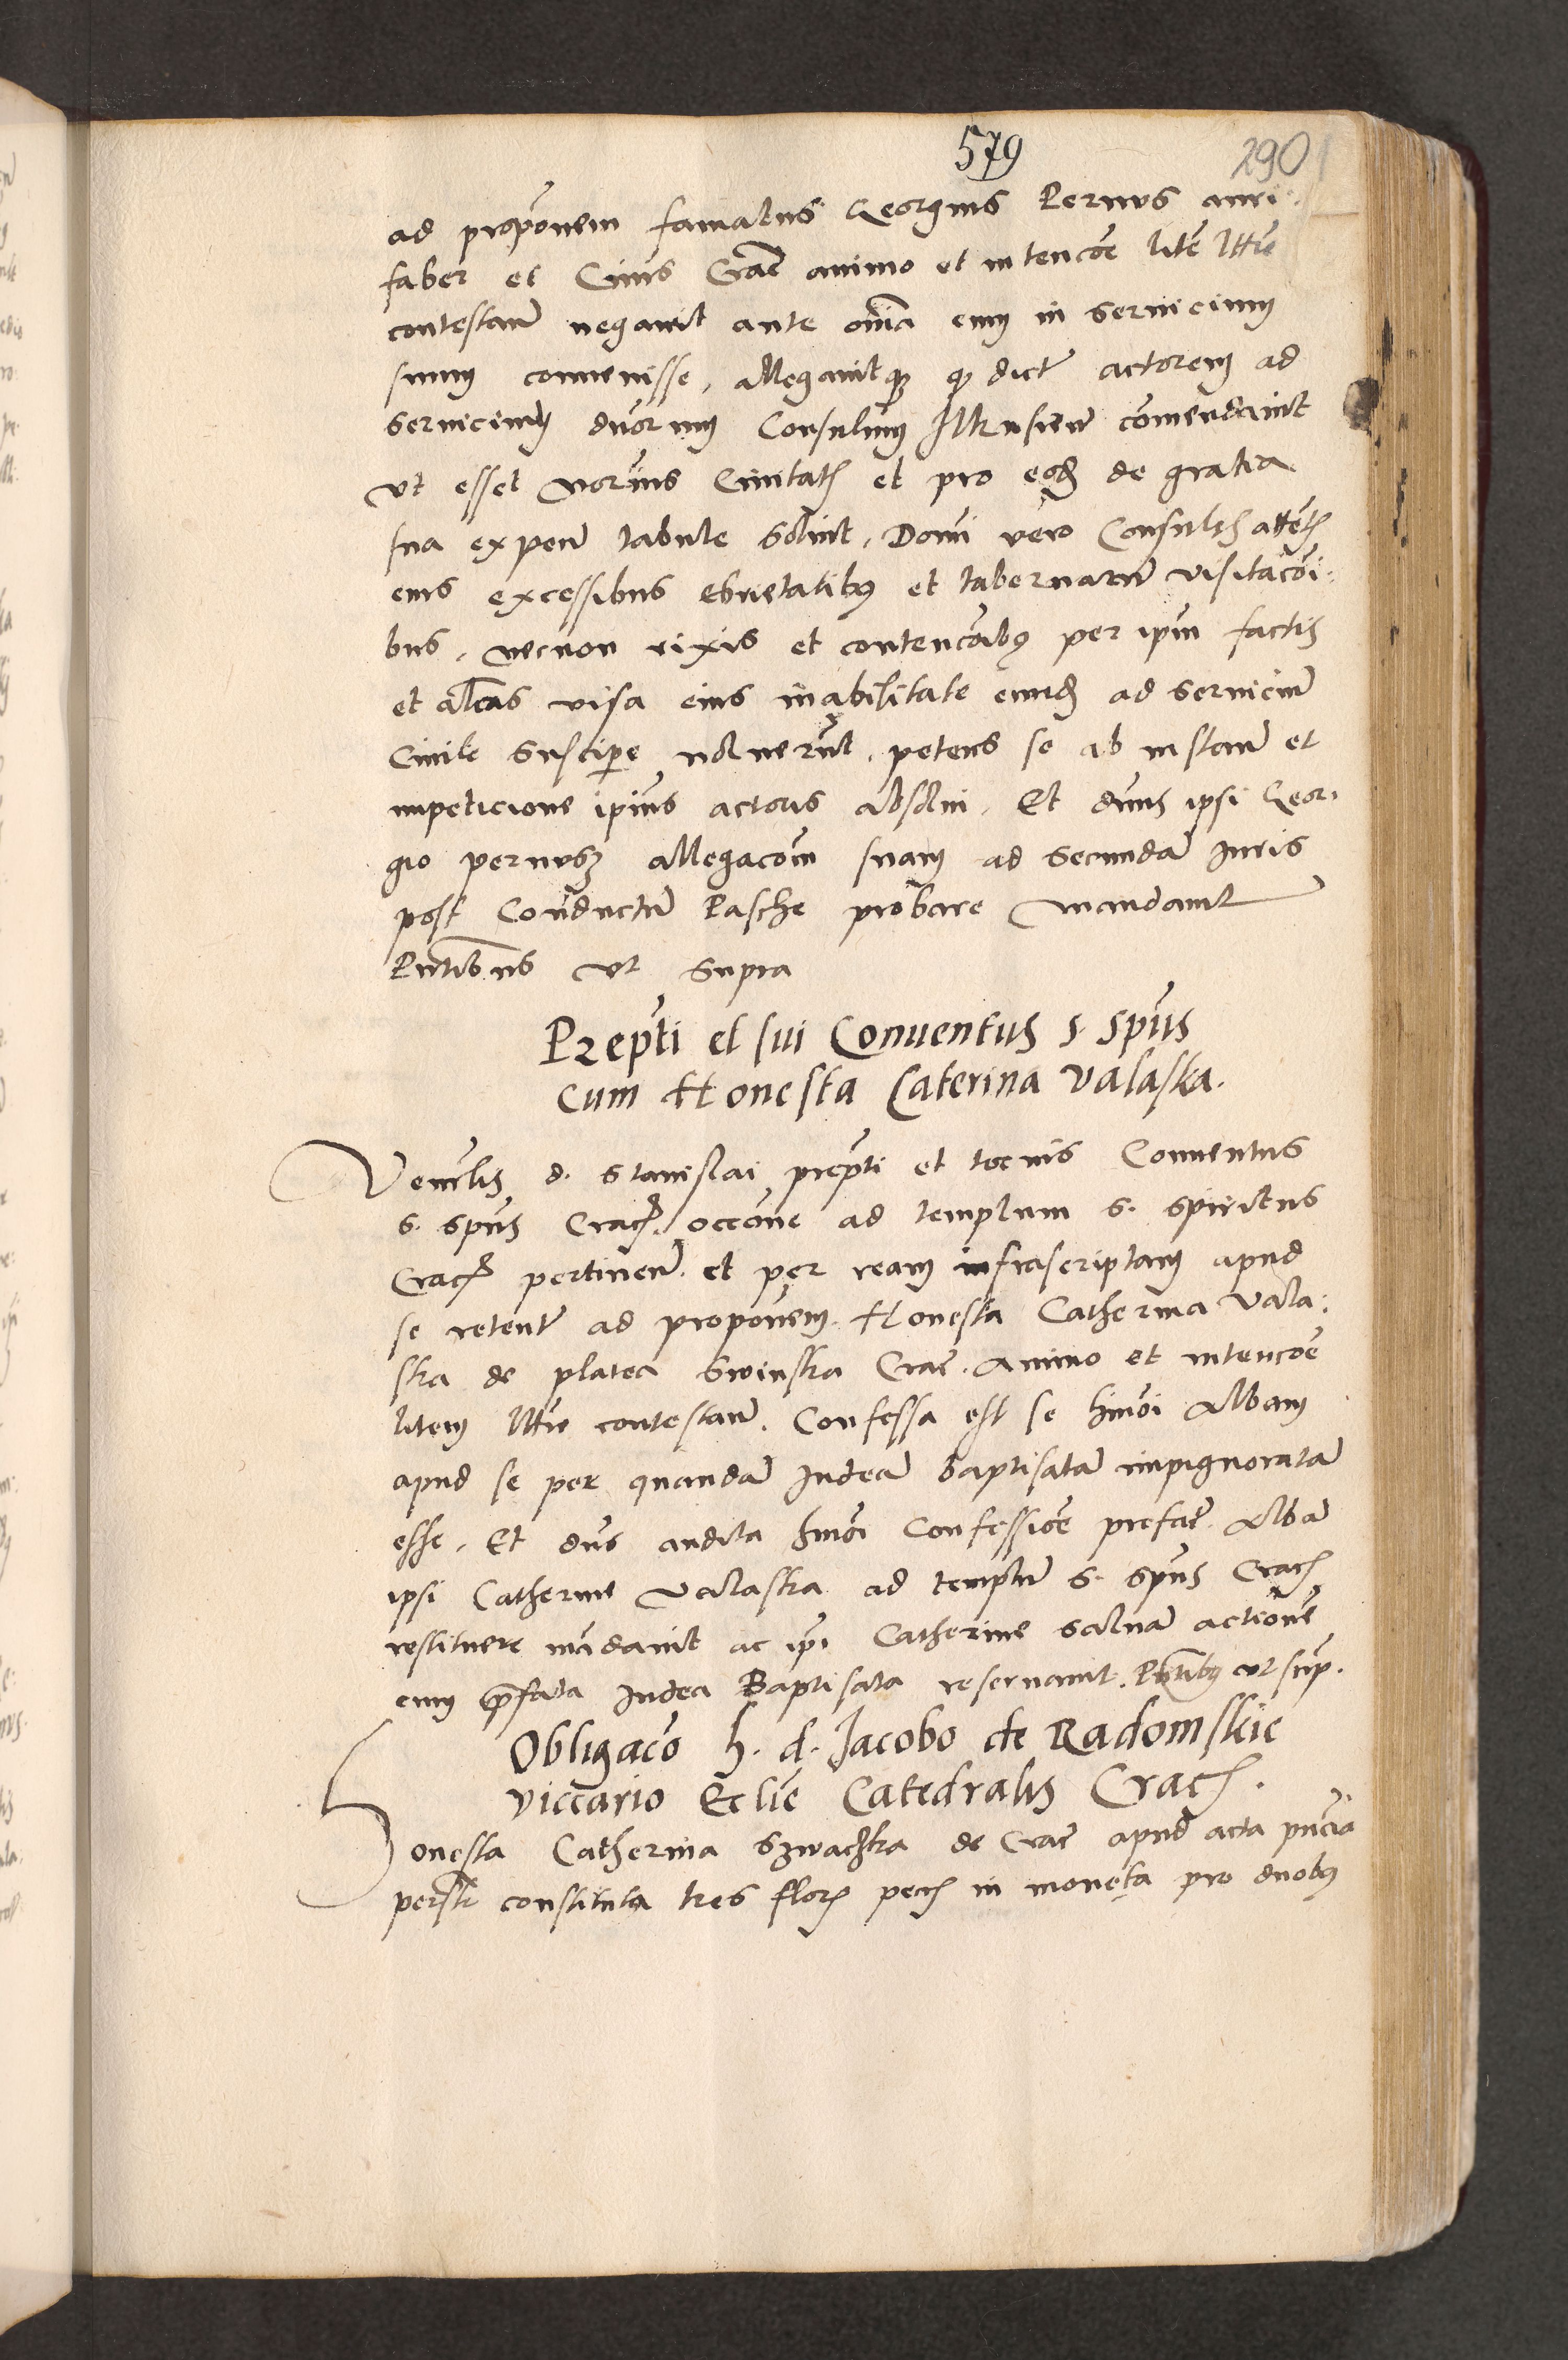 579
290
ad proponem famatus Georgius Pernus auri:
faber et Civis Crac animo et intencoe lite lttie
contestan negavit ante omnia eum in servicium
suum convenisse, allegavitque quod dictu actorem ad
servicium dnorum Consulum Ilkusien comendavit
ut esset Notarius Civitatis et pro eodem de gratia
sua expen tabule solvit, Domi vero Consules attentis
eius excessibus ebrietatibus et tabernarum visitacoi:
bus, necnon rixis et contencoibus per ipm factis
et alias visa eius inabilitate eundem ad servicium
Civile suscipere noluerunt, petens se ab instan et
impeticione ipius actoris absolvi, Et dnus ipsi Geor:
gio pernusz allegacoem suam ad secundam Iuris
post Conductum Pasche probare mandavit
Pntibus ut supra
Prepti et sui Conventus s. spus
cum Honesta Caterina Valaska.
Venerlis d. Stanislai prepti et tocius Conventus
s. spus Crac. occone ad templum s. spiritus
Crac pertinen. et per ream infrascriptam apud
se retent ad proponem. Honesta Catherina Vala:
ska de platea Swinska Crac. animo et intencoe
litem lttie contestan. Confessa est se hmoi Albam
apud se per quandam Iudeam baptisatam impignoratam
esse. Et dnus audita hmoi Confessioe prefate Albam
ipsi Catherine Valaska ad templum s. spus Crac
restituere mandavit ac ipi Catherine salvam actionem
cum prefata Iudea Baptisata reservavit. Pntibus ut sup.
Obligaco h. d. Jacobo de Radomskie
viccario Eclie Catedralis Crac.
Honesta Catherina Szwaczka de Crac apud acta pncia
perslr constituta tres flor pecn in moneta pro duobus